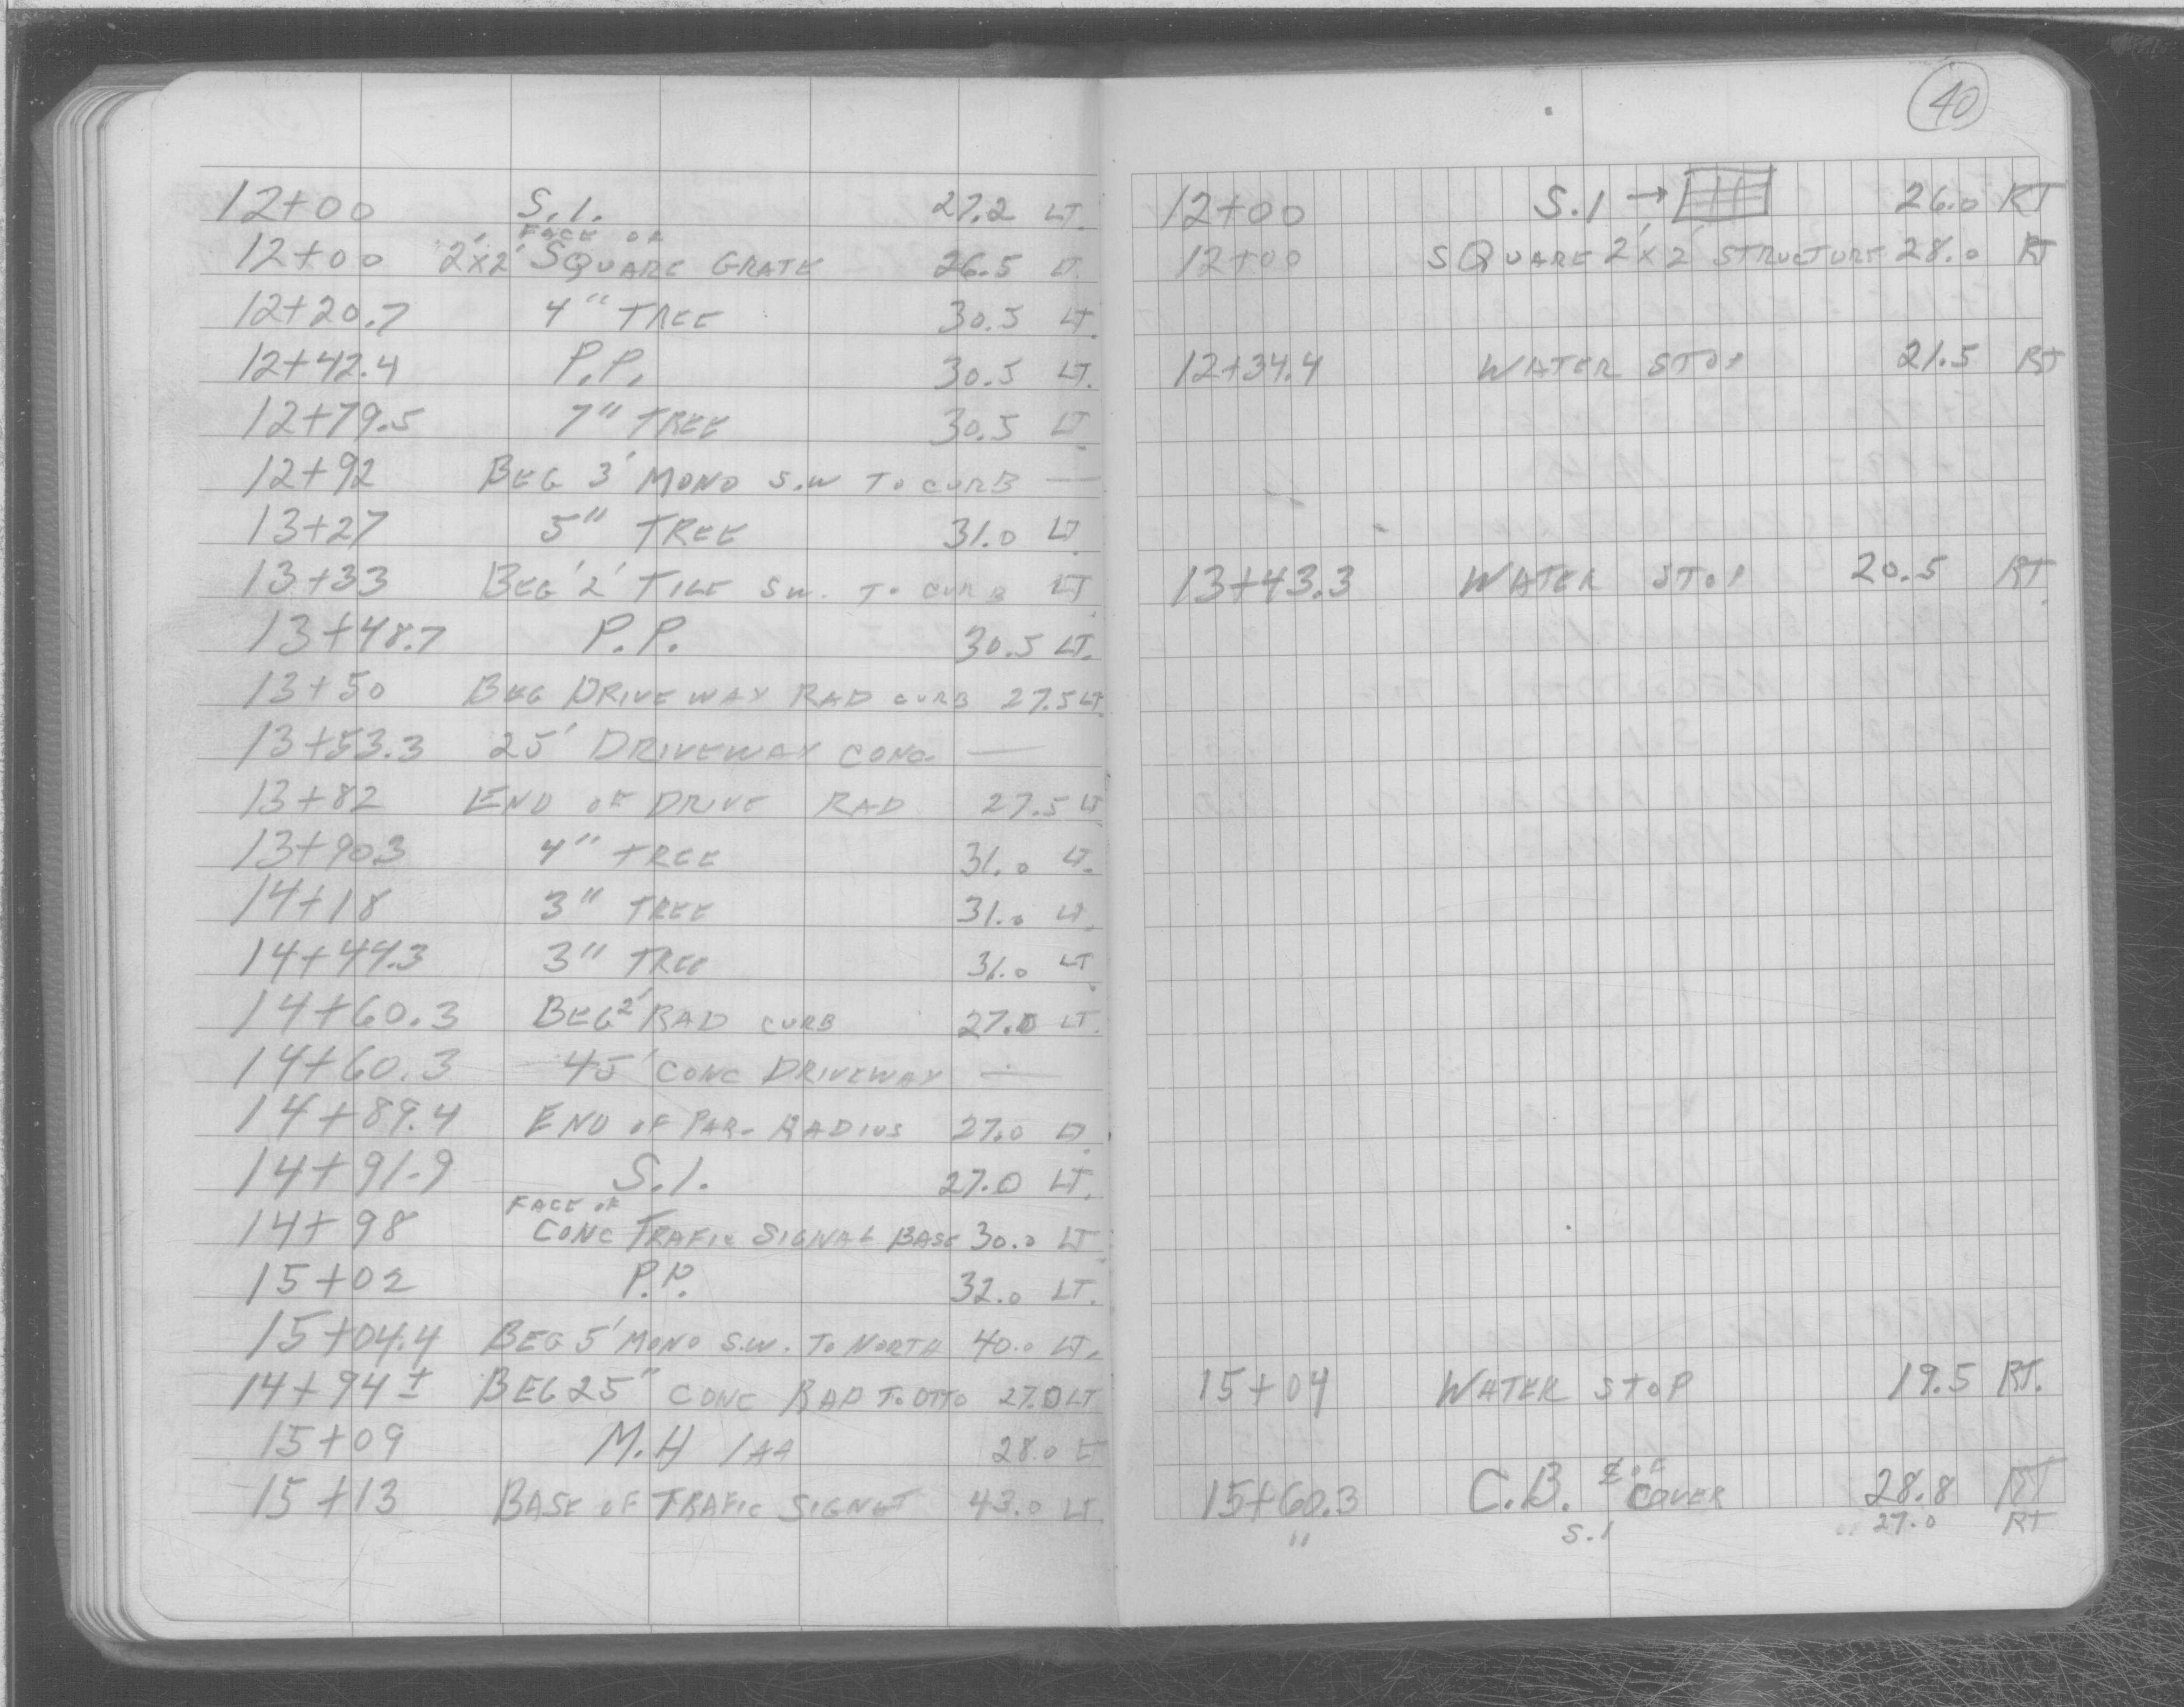 40
12+00 S.I. 27.2 LT.
12+00 2'x2' FACE OF SQUARE GRATE 26.5 LT.
12+20.7 4" TREE 30.5 LT.
12+42.4 P.P. 30.5 LT.
12+79.5 7" TREE 30.5 LT.
12+92 BEG 3' MONO S.W TO CURB —
13+27 5" TREE 31.0 LT.
13+33 BEG 2' TILE SW. TO CURB LT.
13+48.7 P.P. 30.5 LT.
13+50 BEG DRIVEWAY RAD CURB 27.5 LT
13+53.3 25' DRIVEWAY CONC. —
13+82 END OF DRIVE RAD 27.5 LT
13+90.3 4" TREE 31.0 LT.
14+18 3" TREE 31.0 LT.
14+44.3 3" TREE 31.0 LT.
14+60.3 BEG 2' RAD CURB 27.0 LT.
14+60.3 45' CONC DRIVEWAY —
14+89.4 END OF PAR- RADIUS 27.0 LT.
14+91.9 S.I. 27.0 LT.
14+98 FACE OF CONC TRAFIC SIGNAL BASE 30.0 LT
15+02 P.P. 32.0 LT.
15+04.4 BEG 5' MONO S.W. TO NORTH 40.0 LT.
14+94 ± BEG 25" CONC RAD TO OTTO 27.0 LT
15+09 M.H 28.0
15+13 BASE OF TRAFIC SIGNAT 43.0 LT.
12+00 S.I → 26.0 RT
12+00 SQUARE 2'x2' STRUCTURE 28.0 RT
12+34.4 WATER STOP 21.5 RT
13+43.3 WATER STOP 20.5 RT.
15+04 WATER STOP 19.5 RT.
15+60.3 C.B. ₵ OF COVER 28.8 RT
" S.I 27.0 RT